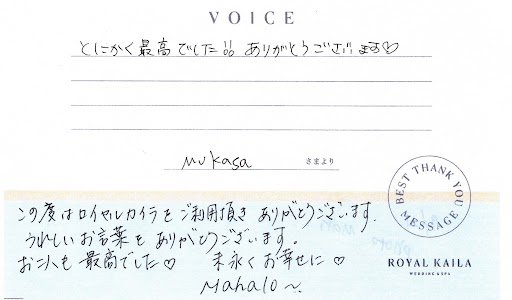 VOICE
とにかく最高でした!! ありがとうございます♡
Mukasa さまより
BEST THANK YOU MESSAGE
この度はロイヤルカイラをご利用頂き ありがとうございます.
うれしいお言葉を ありがとうございます.
お二人も 最高でした♡ 末永くお幸せに♡
Mahalo〜.
ROYAL KAILA
WEDDING & SPA